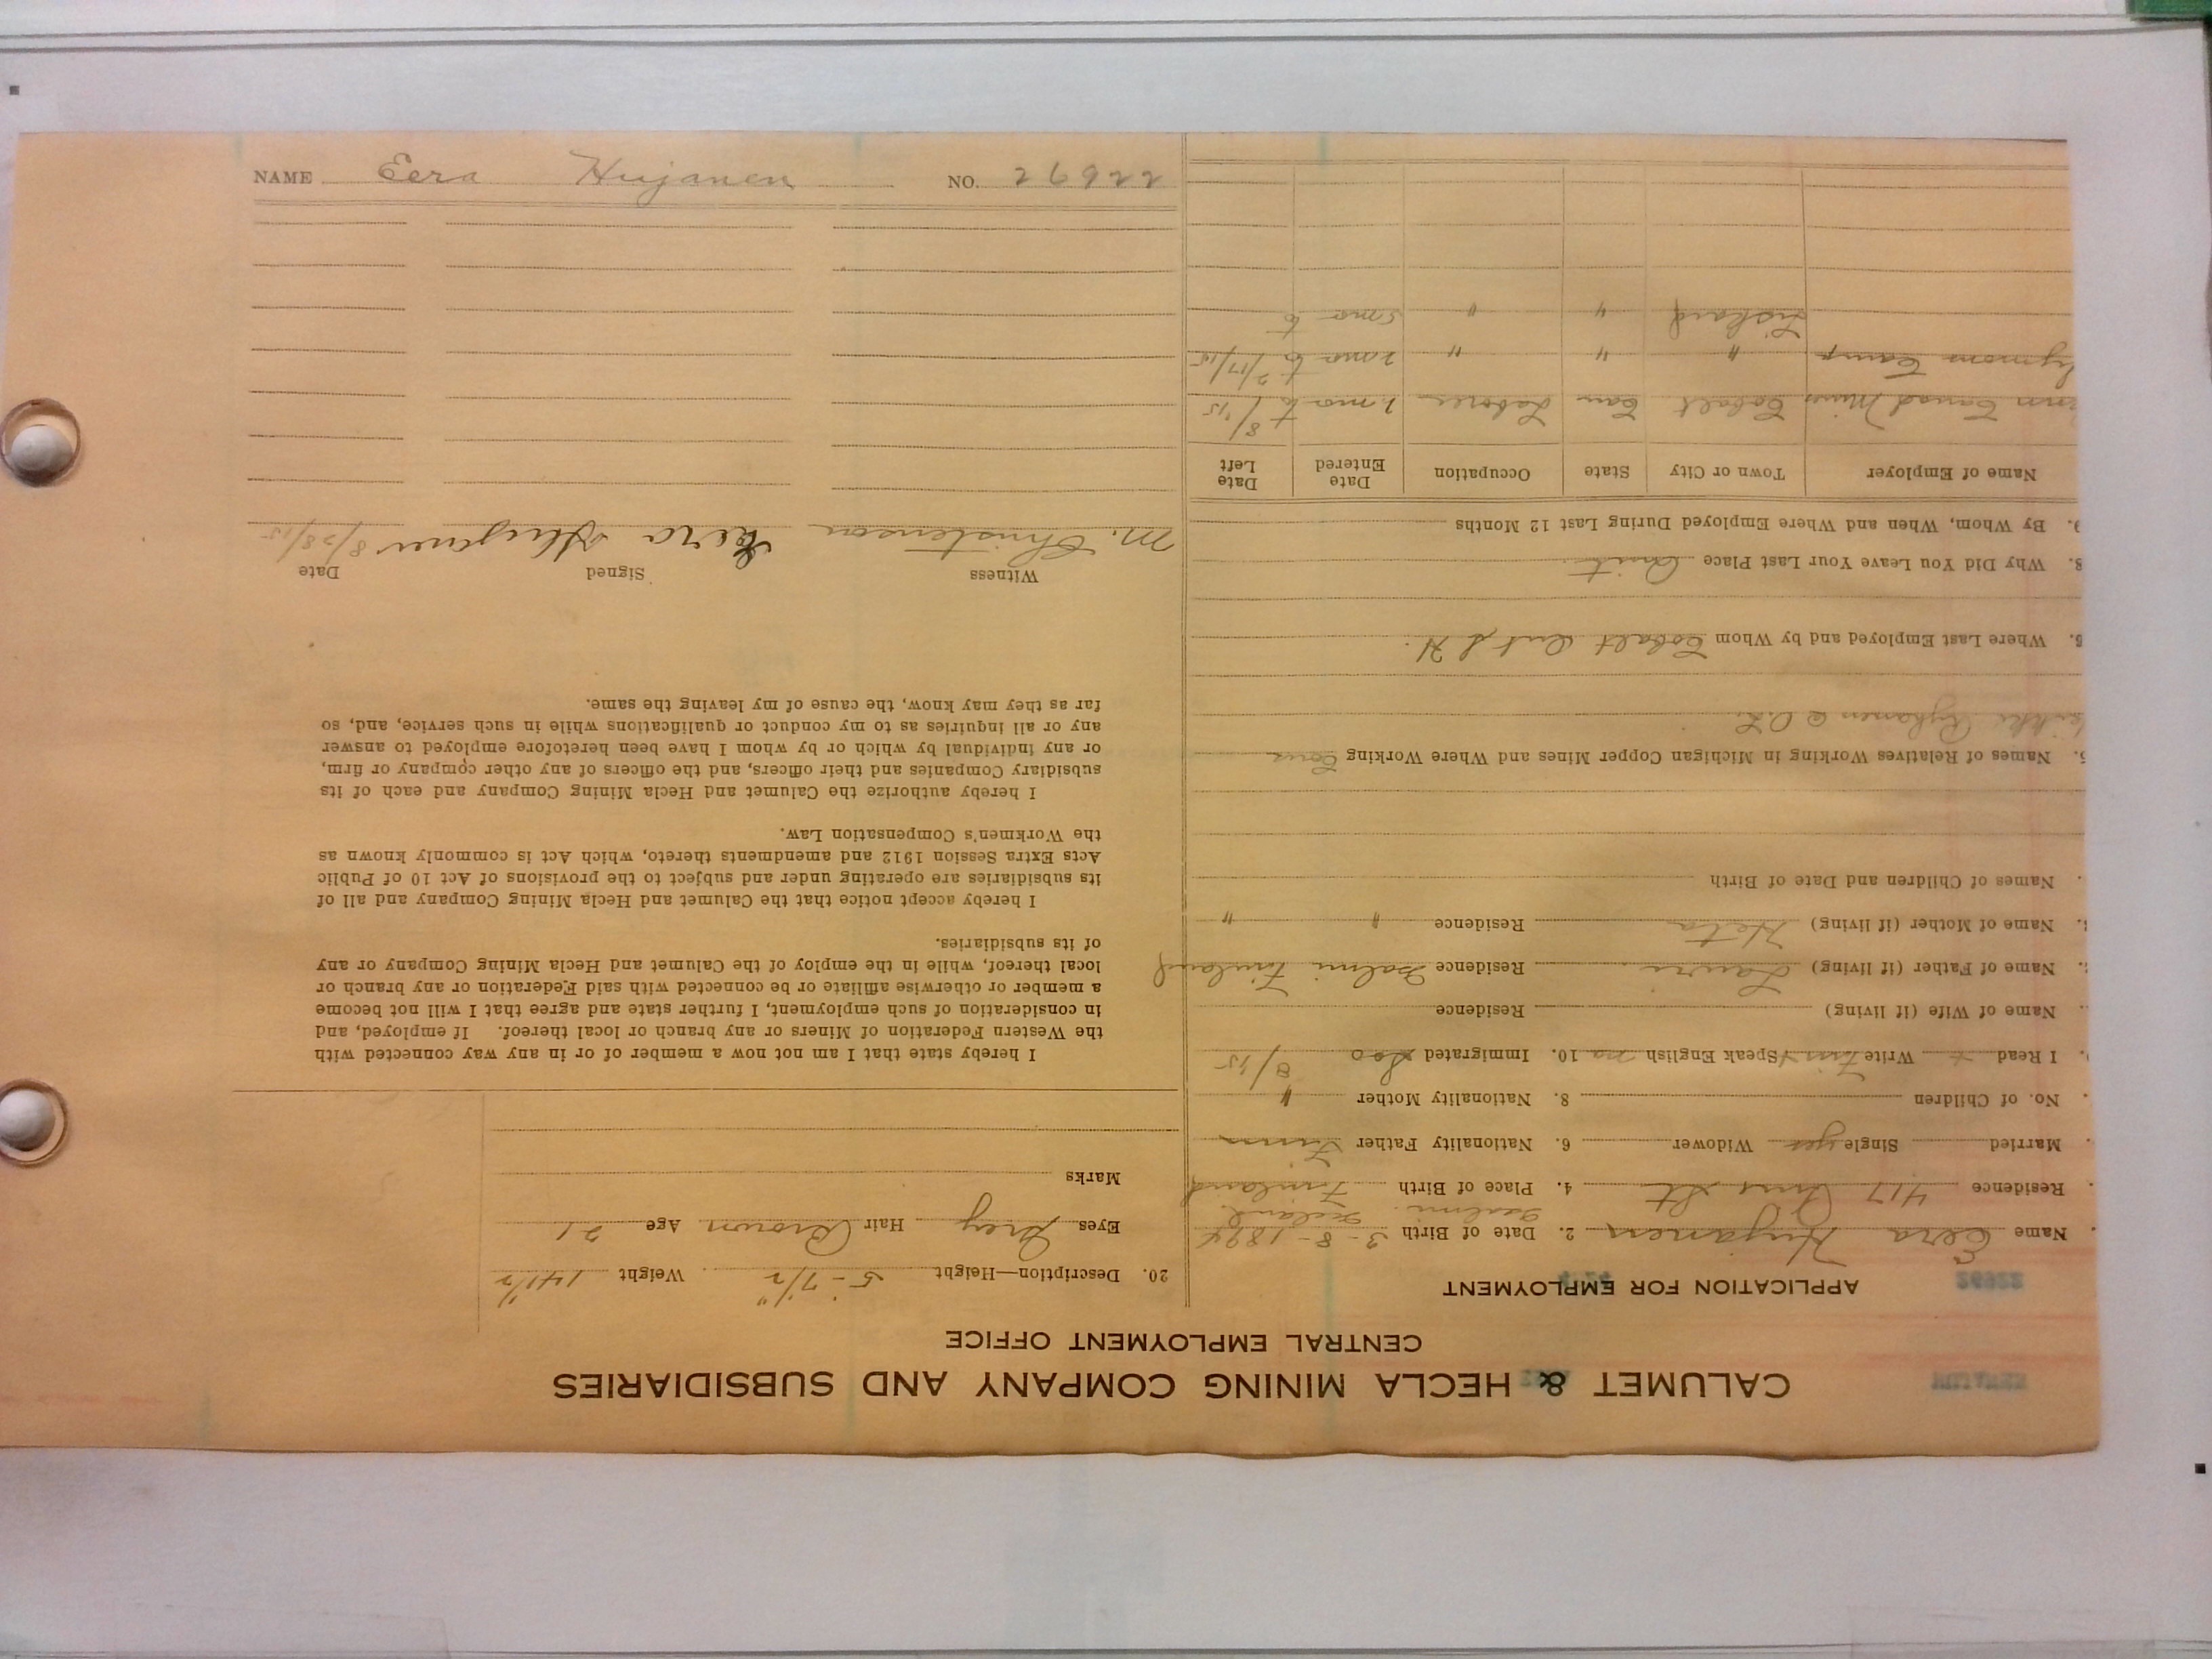 CALUMET & HECLA MINING COMPANY AND SUBSIDIARIES
CENTRAL EMPLOYMENT OFFICE
APPLICATION FOR EMPLOYMENT
Name Eera Hujanen 2. Date of Birth 3-8-1894
Residence 417 Pine St 4. Place of Birth Finland
Married Single yes Widower 6. Nationality Father Finn
No. of Children 8. Nationality Mother "
I Read Write Finn Speak English no 10. Immigrated Soo 8/15
Name of Wife (if living) Residence
Name of Father (if living) Lauri Residence Finland
Name of Mother (if living) Heta Residence " "
Names of Children and Date of Birth
5. Names of Relatives Working in Michigan Copper Mines and Where Working
Where Last Employed and by Whom Cobalt Ont
8. Why Did You Leave Your Last Place Quit
9. By Whom, When and Where Employed During Last 12 Months
Name of Employer Town or City State Occupation Date Entered Date Left
Mines Cobalt Can Laborer 2 mo to 8/15
Camp " " " 2 mo to 7/15
" " 5 mo to
20. Description—Height 5-7 1/2" Weight 141 1/2
Eyes Grey Hair Brown Age 21
Marks
I hereby state that I am not now a member of or in any way connected with
the Western Federation of Miners or any branch or local thereof. If employed, and
in consideration of such employment, I further state and agree that I will not become
a member or otherwise affiliate or be connected with said Federation or any branch or
local thereof, while in the employ of the Calumet and Hecla Mining Company or any
of its subsidiaries.
I hereby accept notice that the Calumet and Hecla Mining Company and all of
its subsidiaries are operating under and subject to the provisions of Act 10 of Public
Acts Extra Session 1912 and amendments thereto, which Act is commonly known as
the Workmen's Compensation Law.
I hereby authorize the Calumet and Hecla Mining Company and each of its
subsidiary Companies and their officers, and the officers of any other company or firm,
or any individual by which or by whom I have been heretofore employed to answer
any or all inquiries as to my conduct or qualifications while in such service, and, so
far as they may know, the cause of my leaving the same.
Witness Signed Date
M. Christenson Eera Hujanen 8/28/15
NAME Eera Hujanen NO. 26922